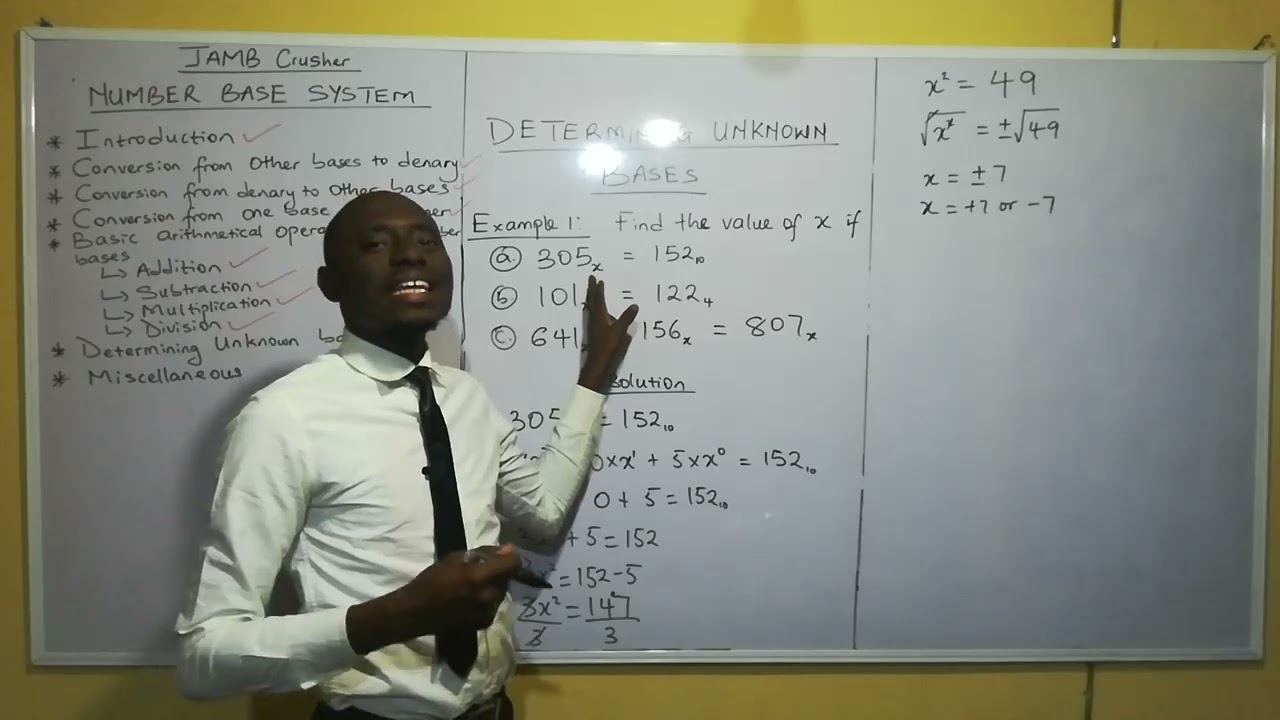 JAMB Crusher
NUMBER BASE SYSTEM
* Introduction ✓
* Conversion from Other bases to denary ✓
* Conversion from denary to Other bases ✓
* Conversion from one base
* Basic arithmetical
bases
↳ Addition ✓
↳ Subtraction ✓
↳ Multiplication ✓
↳ Division ✓
* Determining Unknown
* Miscellaneous
DETERMINING UNKNOWN
BASES
Example 1: Find the value of x if
(a) 305ₓ = 152₁₀
(b) 101 = 122₄
(c) 641 156ₓ = 807ₓ
Solution
305 = 152₁₀
0×x¹ + 5×x⁰ = 152₁₀
0 + 5 = 152₁₀
+ 5 = 152
= 152 - 5
3x² = 147
3 3
x² = 49
√x² = ±√49
x = ±7
x = +7 or -7